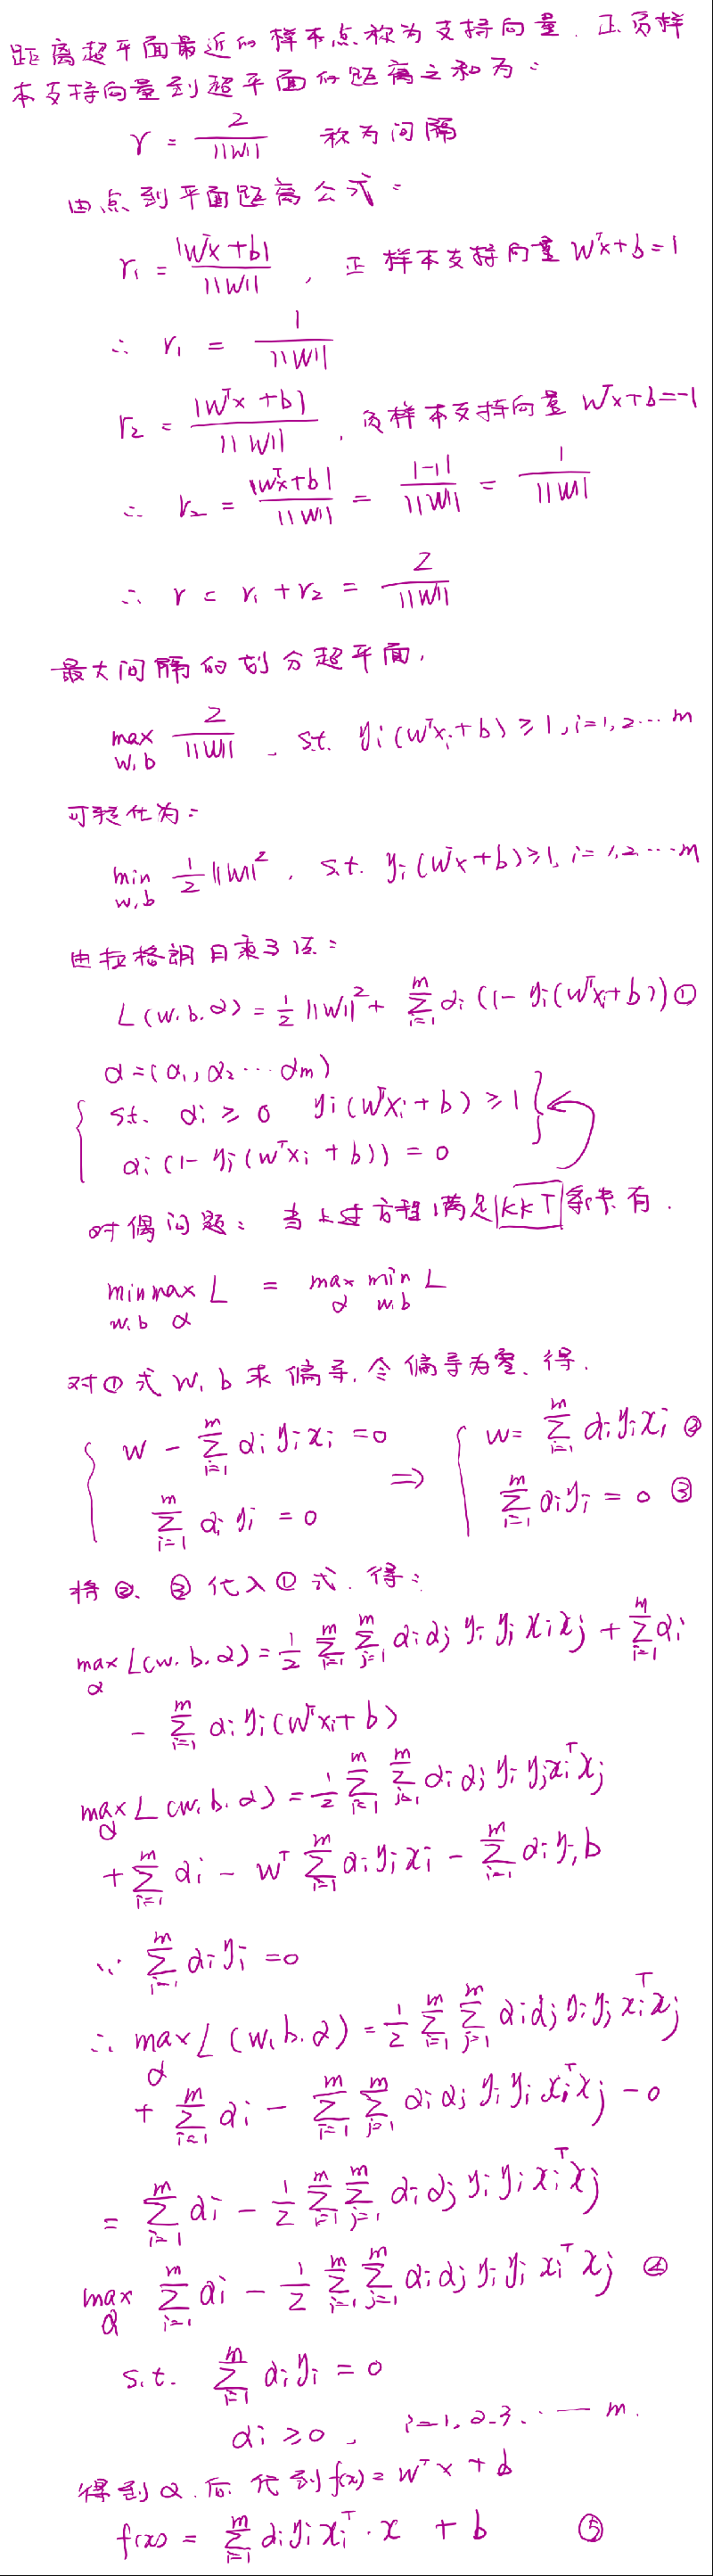 距离超平面最近的样本点称为支持向量. 正负样
本支持向量到超平面的距离之和为:
γ = 2/||w|| 称为间隔
由点到平面距离公式:
r₁ = |wᵀx+b|/||w|| , 正样本支持向量 wᵀx+b=1
∴ r₁ = 1/||w||
r₂ = |wᵀx+b|/||w|| , 负样本支持向量 wᵀx+b=-1
∴ r₂ = |wᵀx+b|/||w|| = |-1|/||w|| = 1/||w||
∴ r = r₁+r₂ = 2/||w||
最大间隔的划分超平面,
max_{w,b} 2/||w|| , s.t. yᵢ(wᵀxᵢ+b) ≥ 1, i=1,2…m
可转化为:
min_{w,b} 1/2||w||² , s.t. yᵢ(wᵀx+b)≥1, i=1,2…m
由拉格朗日乘子法:
L(w.b.α) = 1/2||w||² + Σ_{i=1}^{m} αᵢ(1-yᵢ(wᵀxᵢ+b)) ①
α=(α₁,α₂…αm)
s.t. αᵢ ≥ 0 yᵢ(wᵀxᵢ+b) ≥ 1
αᵢ(1-yᵢ(wᵀxᵢ+b)) = 0
对偶问题: 当上述方程满足KKT条件有.
min_{w,b} max_{α} L = max_{α} min_{w,b} L
对①式w,b求偏导,令偏导为零,得.
w - Σ_{i=1}^{m} αᵢyᵢxᵢ = 0 ⇒ w = Σ_{i=1}^{m} αᵢyᵢxᵢ ②
Σ_{i=1}^{m} αᵢyᵢ = 0 Σ_{i=1}^{m} αᵢyᵢ = 0 ③
将②、③代入①式.得:
max_{α} L(w.b.α) = 1/2 Σ_{i=1}^{m} Σ_{j=1}^{m} αᵢαⱼyᵢyⱼxᵢxⱼ + Σ_{i=1}^{m} αᵢ
- Σ_{i=1}^{m} αᵢyᵢ(wᵀxᵢ+b)
max_{α} L(w.b.α) = 1/2 Σ_{i=1}^{m} Σ_{j=1}^{m} αᵢαⱼyᵢyⱼxᵢᵀxⱼ
+ Σ_{i=1}^{m} αᵢ - wᵀ Σ_{i=1}^{m} αᵢyᵢxᵢ - Σ_{i=1}^{m} αᵢyᵢb
∵ Σ_{i=1}^{m} αᵢyᵢ = 0
∴ max_{α} L(w.b.α) = 1/2 Σ_{i=1}^{m} Σ_{j=1}^{m} αᵢαⱼyᵢyⱼxᵢᵀxⱼ
+ Σ_{i=1}^{m} αᵢ - Σ_{i=1}^{m} Σ_{j=1}^{m} αᵢαⱼyᵢyⱼxᵢᵀxⱼ - 0
= Σ_{i=1}^{m} αᵢ - 1/2 Σ_{i=1}^{m} Σ_{j=1}^{m} αᵢαⱼyᵢyⱼxᵢᵀxⱼ
max_{α} Σ_{i=1}^{m} αᵢ - 1/2 Σ_{i=1}^{m} Σ_{j=1}^{m} αᵢαⱼyᵢyⱼxᵢᵀxⱼ ④
s.t. Σ_{i=1}^{m} αᵢyᵢ = 0
αᵢ ≥ 0, i=1.2.3.…m.
得到α.后.代到f(x)=wᵀx+b
f(x) = Σ_{i=1}^{m} αᵢyᵢxᵢᵀ·x + b ⑤